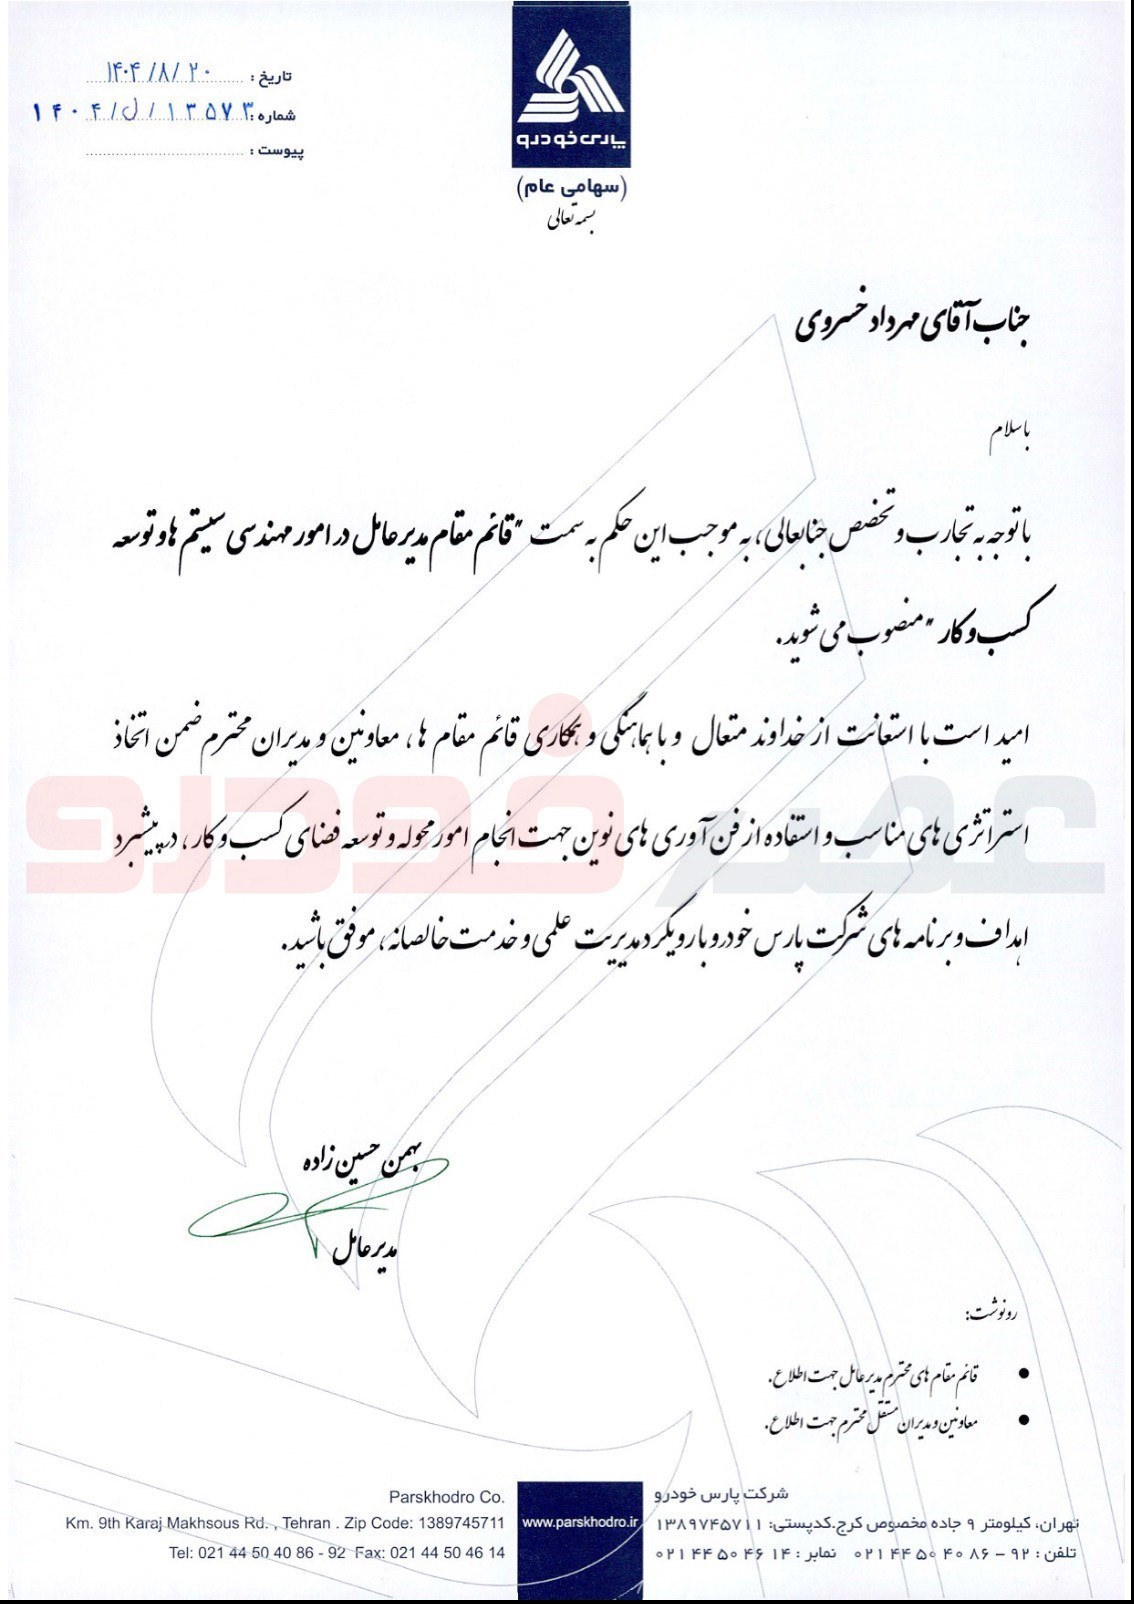 تاریخ : ۱۴۰۴/۸/۲۰
شماره : ۱۴۰۴/ل/۱۳۵۷۳
پیوست :
پارس خودرو
(سهامی عام)
بسمه تعالی
جناب آقای مهرداد خسروی
با سلام
با توجه به تجارب و تخصص جنابعالی، به موجب این حکم به سمت "قائم مقام مدیرعامل در امور مهندسی سیستم ها و توسعه
کسب و کار" منصوب می شوید.
امید است با استعانت از خداوند متعال و با هماهنگی و همکاری قائم مقام ها، معاونین و مدیران محترم ضمن اتخاذ
استراتژی های مناسب و استفاده از فن آوری های نوین جهت انجام امور محوله و توسعه فضای کسب و کار، در پیشبرد
اهداف و برنامه های شرکت پارس خودرو با رویکرد مدیریت علمی و خدمت خالصانه، موفق باشید.
عصر خودرو
بهمن حسین زاده
مدیرعامل
رونوشت:
• قائم مقام های محترم مدیرعامل جهت اطلاع.
• معاونین و مدیران مستقل محترم جهت اطلاع.
شرکت پارس خودرو
تهران، کیلومتر ۹ جاده مخصوص کرج.کدپستی: ۱۳۸۹۷۴۵۷۱۱
تلفن : ۹۲ – ۸۶ ۴۰ ۵۰ ۴۴ ۰۲۱ نمابر : ۱۴ ۴۶ ۵۰ ۴۴ ۰۲۱
www.parskhodro.ir
Parskhodro Co.
Km. 9th Karaj Makhsous Rd. , Tehran . Zip Code: 1389745711
Tel: 021 44 50 40 86 - 92 Fax: 021 44 50 46 14